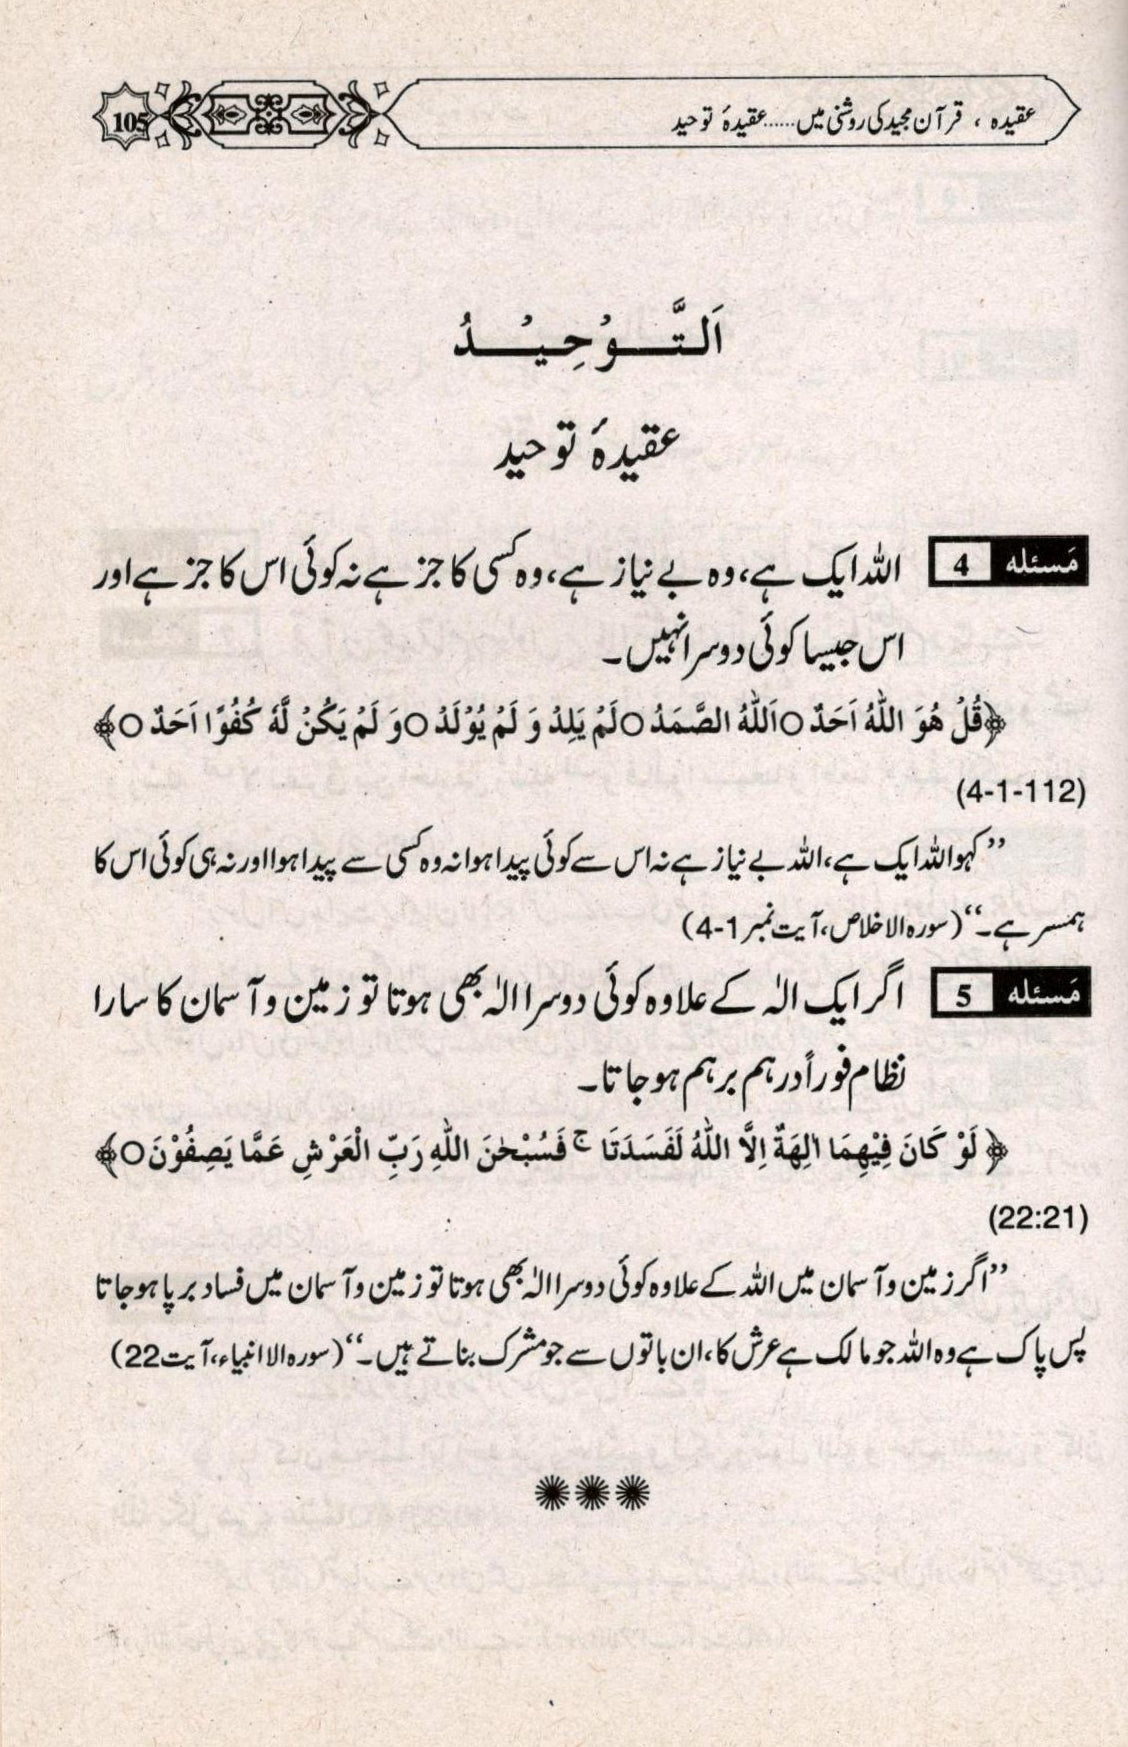 عقیدہ ، قرآن مجید کی روشنی میں......عقیدۂ توحید
105
اَلتَّــوْحِيْــدُ
عقیدۂ توحید
مَسئله 4 اللہ ایک ہے، وہ بے نیاز ہے، وہ کسی کا جز ہے نہ کوئی اس کا جز ہے اور
اس جیسا کوئی دوسرا نہیں۔
﴿قُلْ هُوَ اللّٰهُ اَحَدٌ ○ اَللّٰهُ الصَّمَدُ ○ لَمْ يَلِدْ وَ لَمْ يُوْلَدْ ○ وَ لَمْ يَكُنْ لَّهٗ كُفُوًا اَحَدٌ ○﴾
(4-1-112)
’’کہو اللہ ایک ہے، اللہ بے نیاز ہے نہ اس سے کوئی پیدا ہوا نہ وہ کسی سے پیدا ہوا اور نہ ہی کوئی اس کا
ہمسر ہے۔‘‘ (سورہ الاخلاص، آیت نمبر 1-4)
مَسئله 5 اگر ایک الٰہ کے علاوہ کوئی دوسرا الٰہ بھی ہوتا تو زمین و آسمان کا سارا
نظام فوراً درہم برہم ہو جاتا۔
﴿لَوْ كَانَ فِيْهِمَا اٰلِهَةٌ اِلَّا اللّٰهُ لَفَسَدَتَا ج فَسُبْحٰنَ اللّٰهِ رَبِّ الْعَرْشِ عَمَّا يَصِفُوْنَ ○﴾
(22:21)
’’اگر زمین و آسمان میں اللہ کے علاوہ کوئی دوسرا الٰہ بھی ہوتا تو زمین و آسمان میں فساد برپا ہو جاتا
پس پاک ہے وہ اللہ جو مالک ہے عرش کا، ان باتوں سے جو مشرک بناتے ہیں۔‘‘ (سورہ الاانبیاء، آیت 22)